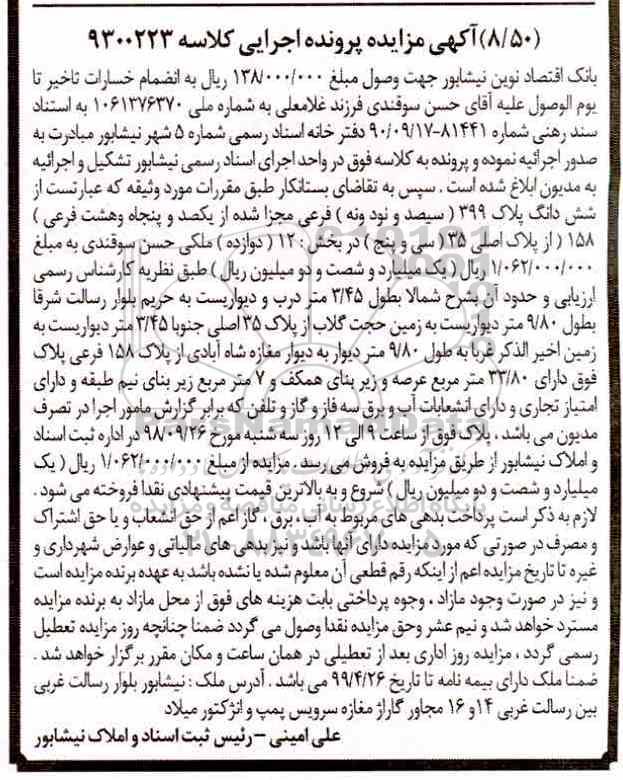 (۸/۵۰)آگهی مزایده پرونده اجرایی کلاسه ۹۳۰۰۲۲۳
بانک اقتصاد نوین نیشابور جهت وصول مبلغ ۱۳۸/۰۰۰/۰۰۰ ریال به انضمام خسارات تاخیر تا
یوم الوصول علیه آقای حسن سوقندی فرزند غلامعلی به شماره ملی ۱۰۶۱۳۷۶۳۷۰ به استناد
سند رهنی شماره ۸۱۴۴۱-۹۰/۰۹/۱۷ دفتر خانه اسناد رسمی شماره ۵ شهر نیشابور مبادرت به
صدور اجرائیه نموده و پرونده به کلاسه فوق در واحد اجرای اسناد رسمی نیشابور تشکیل و اجرائیه
به مدیون ابلاغ شده است . سپس به تقاضای بستانکار طبق مقررات مورد وثیقه که عبارتست از
شش دانگ پلاک ۳۹۹ ( سیصد و نود ونه ) فرعی مجزا شده از یکصد و پنجاه وهشت فرعی )
۱۵۸ ( از پلاک اصلی ۳۵ ( سی و پنج ) در بخش : ۱۲ ( دوازده ) ملکی حسن سوقندی به مبلغ
۱/۰۶۲/۰۰۰/۰۰۰ ریال ( یک میلیارد و شصت و دو میلیون ریال ) طبق نظریه کارشناس رسمی
ارزیابی و حدود آن بشرح شمالا بطول ۳/۴۵ متر درب و دیواریست به حریم بلوار رسالت شرقا
بطول ۹/۸۰ متر دیواریست به زمین حجت گلاب از پلاک ۳۵ اصلی جنوبا ۳/۴۵ متر دیواریست به
زمین اخیر الذکر غربا به طول ۹/۸۰ متر دیوار به دیوار مغازه شاه آبادی از پلاک ۱۵۸ فرعی پلاک
فوق دارای ۳۳/۸۰ متر مربع عرصه و زیر بنای همکف و ۷ متر مربع زیر بنای نیم طبقه و دارای
امتیاز تجاری و دارای انشعابات آب و برق سه فاز و گاز و تلفن که برابر گزارش مامور اجرا در تصرف
مدیون می باشد ، پلاک فوق از ساعت ۹ الی ۱۲ روز سه شنبه مورخ ۹۸/۰۹/۲۶ در اداره ثبت اسناد
و املاک نیشابور از طریق مزایده به فروش می رسد . مزایده از مبلغ ۱/۰۶۲/۰۰۰/۰۰۰ ریال ( یک
میلیارد و شصت و دو میلیون ریال ) شروع و به بالاترین قیمت پیشنهادی نقدا فروخته می شود .
لازم به ذکر است پرداخت بدهی های مربوط به آب ، برق ، گاز اعم از حق انشعاب و یا حق اشتراک
و مصرف در صورتی که مورد مزایده دارای آنها باشد و نیز بدهی های مالیاتی و عوارض شهرداری و
غیره تا تاریخ مزایده اعم از اینکه رقم قطعی آن معلوم شده یا نشده باشد به عهده برنده مزایده است
و نیز در صورت وجود مازاد ، وجوه پرداختی بابت هزینه های فوق از محل مازاد به برنده مزایده
مسترد خواهد شد و نیم عشر وحق مزایده نقدا وصول می گردد ضمنا چنانچه روز مزایده تعطیل
رسمی گردد ، مزایده روز اداری بعد از تعطیلی در همان ساعت و مکان مقرر برگزار خواهد شد .
ضمنا ملک دارای بیمه نامه تا تاریخ ۹۹/۴/۲۶ می باشد . آدرس ملک : نیشابور بلوار رسالت غربی
بین رسالت غربی ۱۴ و ۱۶ مجاور گاراژ مغازه سرویس پمپ و انژکتور میلاد
علی امینی – رئیس ثبت اسناد و املاک نیشابور